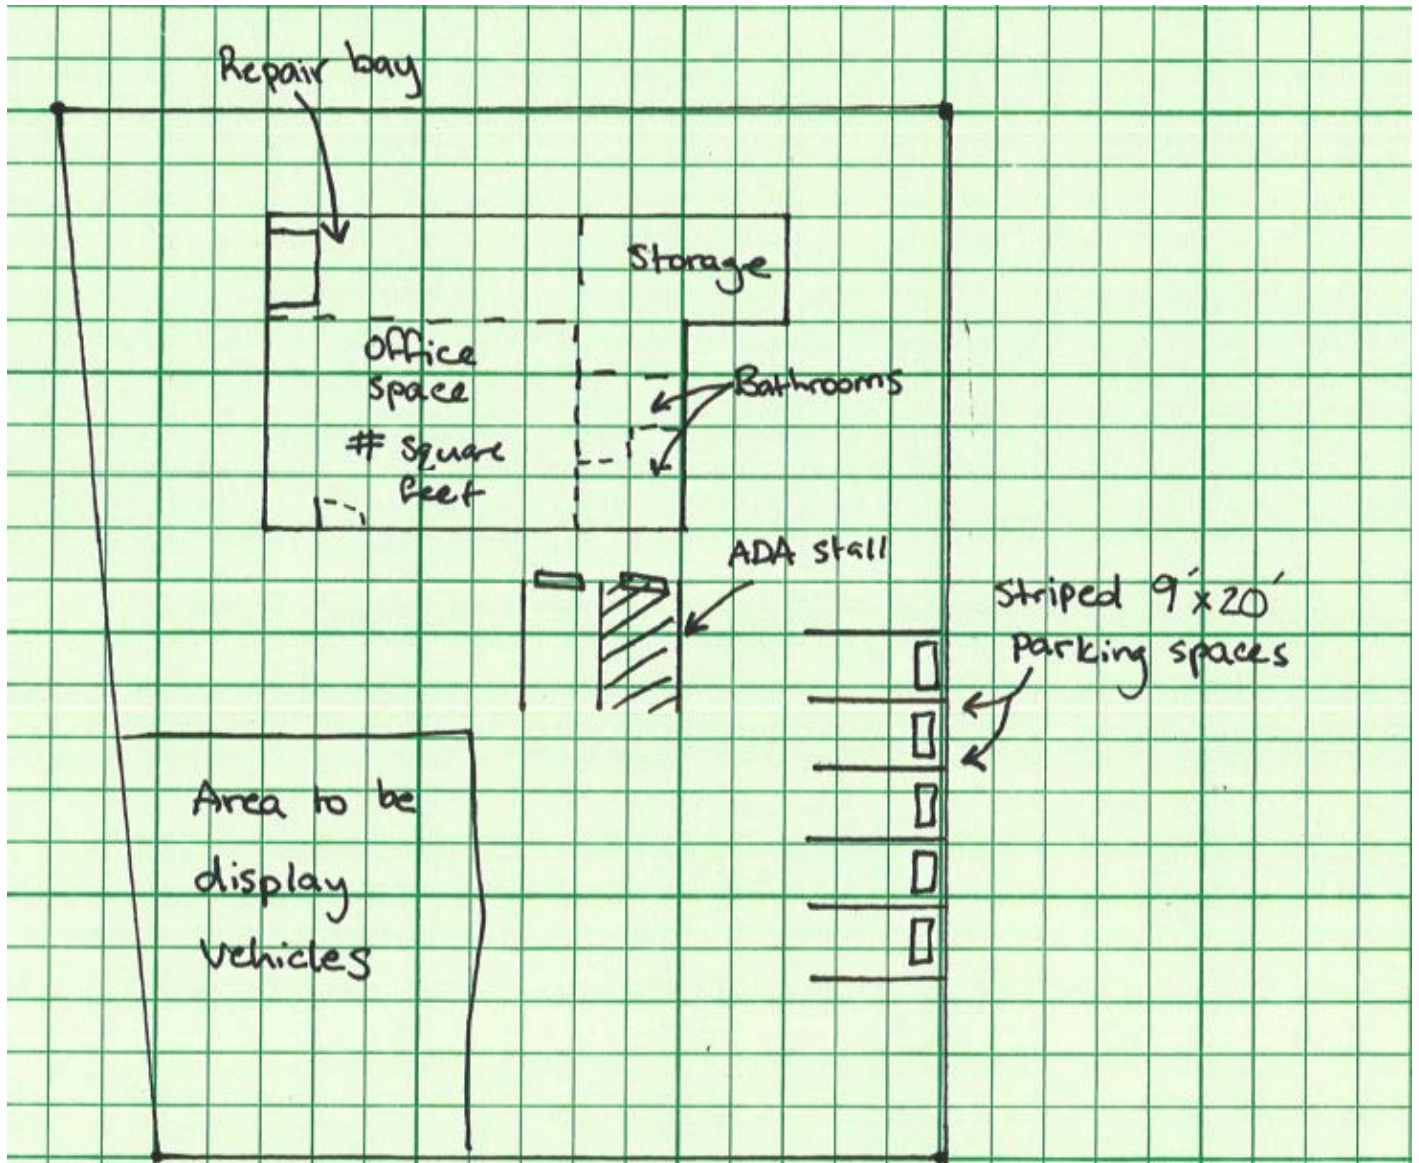 Repair bay
Storage
office
space
# square
feet
Bathrooms
ADA stall
Striped 9'x20'
parking spaces
Area to be
display
vehicles